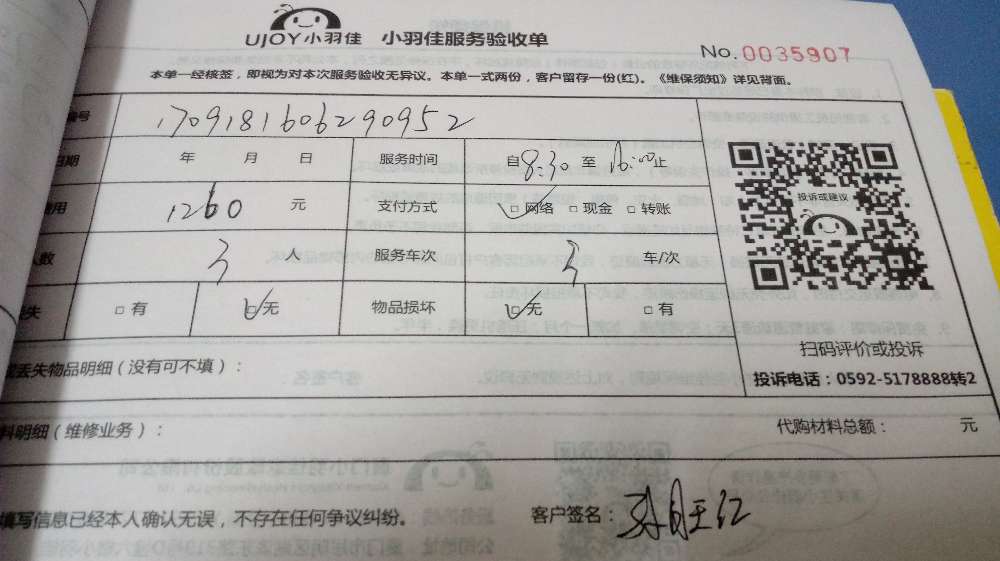 UJOY小羽佳 小羽佳服务验收单
No.0035907
本单一经核签，即视为对本次服务验收无异议。本单一式两份，客户留存一份(红)。《维保须知》详见背面。
编号 1709181606290952
日期 年 月 日 服务时间 自8:30至16:00止
费用 1260 元 支付方式 ☑网络 □现金 □转账
人数 3 人 服务车次 3 车/次
丢失 □有 ☑无 物品损坏 ☑无 □有
投诉或建议
扫码评价或投诉
投诉电话：0592-5178888转2
丢失物品明细（没有可不填）：
料明细（维修业务）： 代购材料总额： 元
填写信息已经本人确认无误，不存在任何争议纠纷。 客户签名：